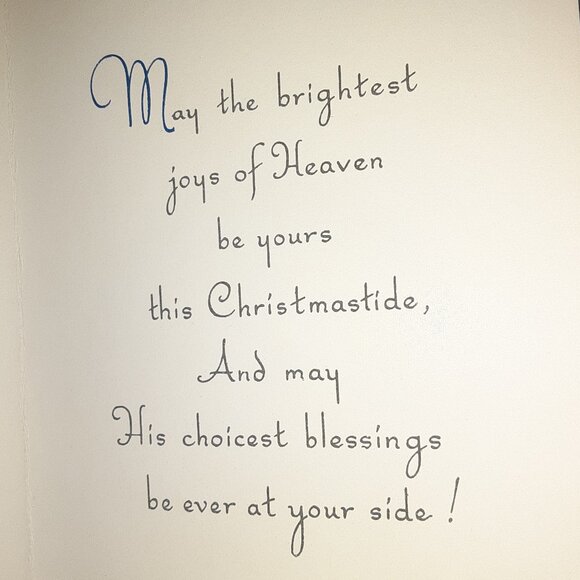 May the brightest
joys of Heaven
be yours
this Christmastide,
And may
His choicest blessings
be ever at your side!